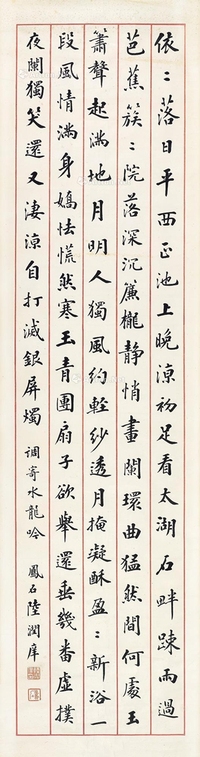 依〻落日平西正池上晚涼初足看太湖石畔踈雨過
芭蕉簇〻院落深沉簾櫳靜悄畫闌環曲猛然間何處玉
簫聲起滿地月明人獨風約輕紗透月掩凝酥盈〻新浴一
段風情滿身嬌怯慌然寒玉青團扇子欲舉還垂幾番虛撲
夜闌獨笑還又淒涼自打滅銀屏燭 調寄水龍吟 鳳石陸潤庠